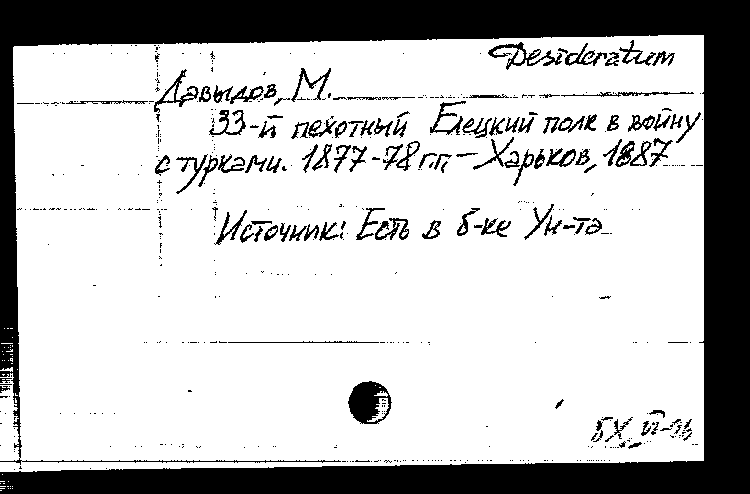 Desideratum
Давыдов, М.
33-й пехотный Елецкий полк в войну
с турками. 1877-78 г.г. – Харьков, 1887
Источник: Есть в б-ке Ун-та
БХ, VI-96